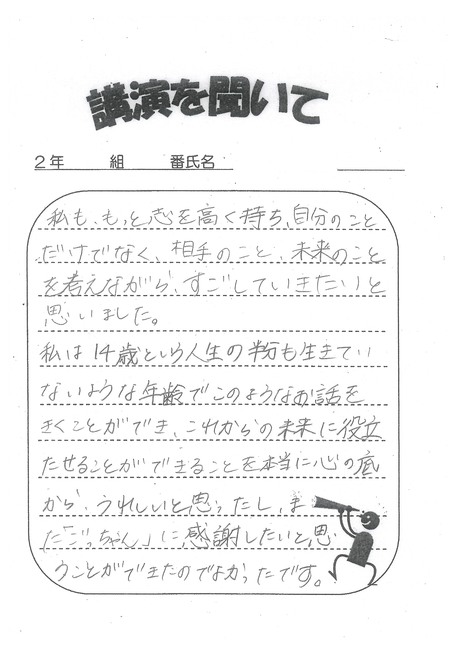 講演を聞いて
2年 組 番氏名
私も、もっと志を高く持ち、自分のこと
だけでなく、相手のこと、未来のこと
を考えながら、すごしていきたいと
思いました。
私は14歳という人生の半分も生きてい
ないような年齢でこのようなお話を
きくことができ、これからの未来に役立
たせることができることを本当に心の底
から、うれしいと思ったし、ま
た「ごっちゃん」に感謝したいと思
うことができたのでよかったです。